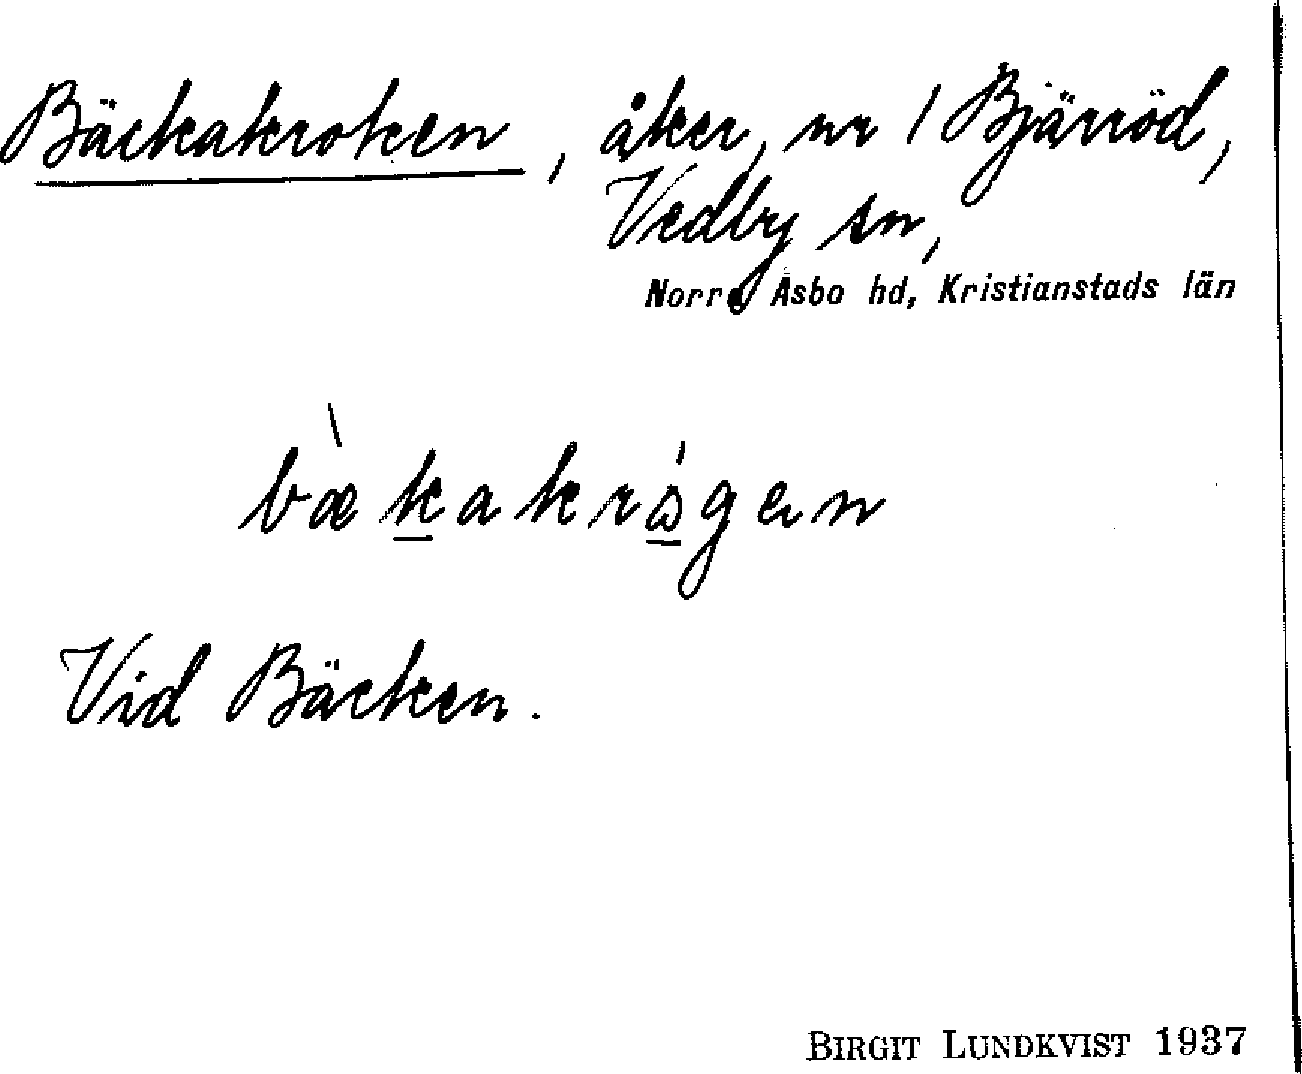 Bäckakroken, åker, nr 1 Bjärröd,
Vedby sn,
Norra Åsbo hd, Kristianstads län
Vid Bäcken.
BIRGIT LUNDKVIST 1937